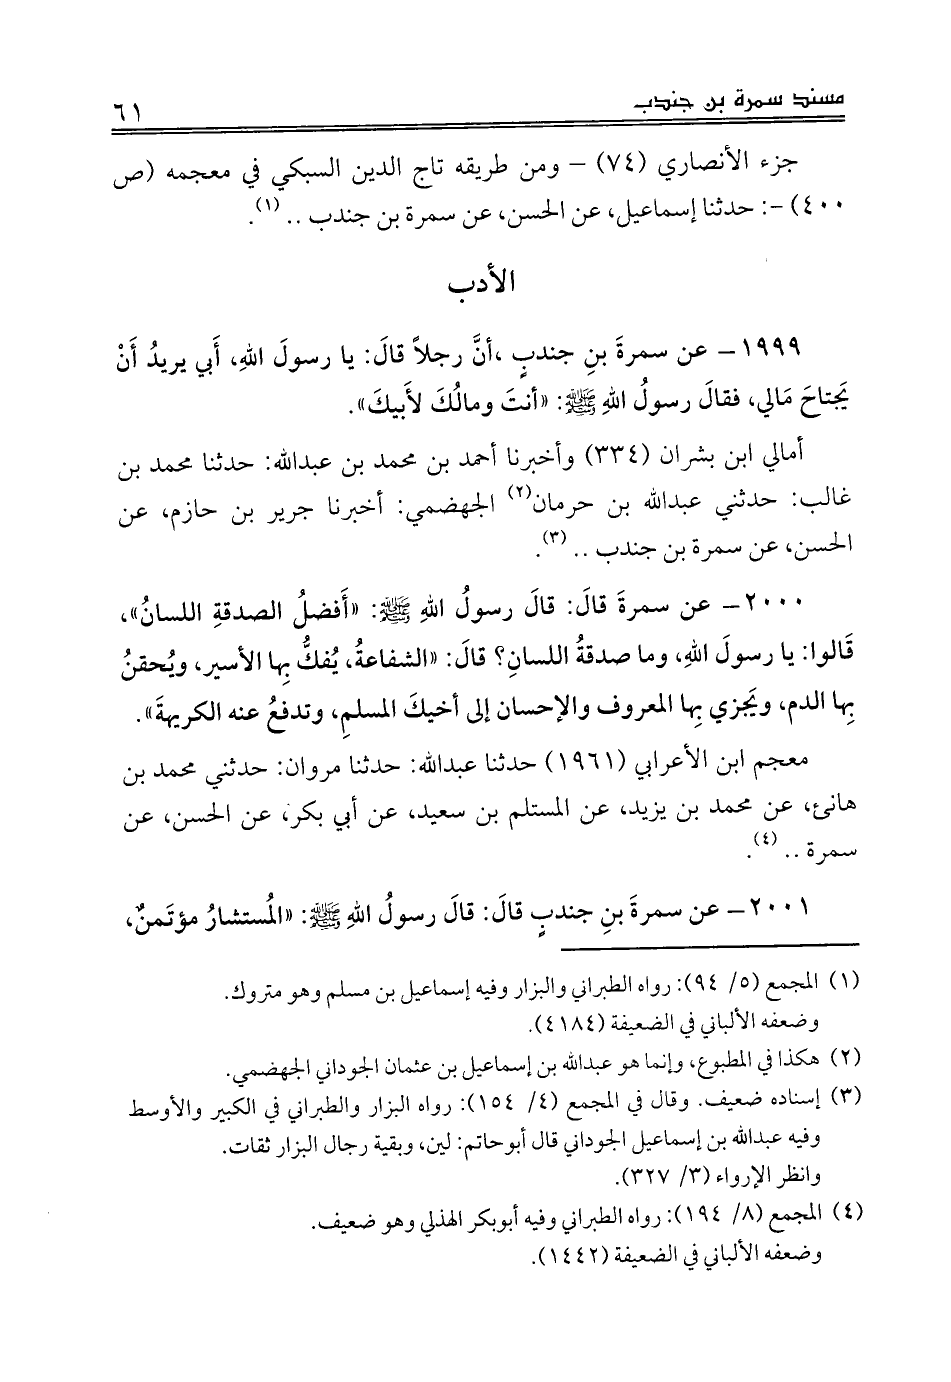 مسند سمرة بن جندب
٦١
جزء الأنصاري (٧٤) – ومن طريقه تاج الدين السبكي في معجمه (ص
٤٠٠) –: حدثنا إسماعيل، عن الحسن، عن سمرة بن جندب .. (١).
الأدب
١٩٩٩– عن سمرةَ بنِ جندبٍ ،أنَّ رجلاً قالَ: يا رسولَ اللهِ، أَبي يريدُ أَنْ
يَجتاحَ مَالي، فقالَ رسولُ اللهِ ﷺ: «أنتَ ومالُكَ لأَبيكَ».
أمالي ابن بشران (٣٣٤) وأخبرنا أحمد بن محمد بن عبدالله: حدثنا محمد بن
غالب: حدثني عبدالله بن حرمان(٢) الجهضمي: أخبرنا جرير بن حازم، عن
الحسن، عن سمرة بن جندب .. (٣).
٢٠٠٠– عن سمرةَ قالَ: قالَ رسولُ اللهِ ﷺ: «أَفضلُ الصدقةِ اللسانُ»،
قَالوا: يا رسولَ اللهِ، وما صدقةُ اللسانِ؟ قالَ: «الشفاعةُ، يُفكُّ بِها الأسير، ويُحقنُ
بِها الدم، ويَجزي بِها المعروف والإحسان إلى أخيكَ المسلمِ، وتدفعُ عنه الكريهةَ».
معجم ابن الأعرابي (١٩٦١) حدثنا عبدالله: حدثنا مروان: حدثني محمد بن
هانئ، عن محمد بن يزيد، عن المستلم بن سعيد، عن أبي بكر، عن الحسن، عن
سمرة .. (٤).
٢٠٠١– عن سمرةَ بنِ جندبٍ قالَ: قالَ رسولُ اللهِ ﷺ: «المُستشارُ مؤتَمنٌ،
(١) المجمع (٥/ ٩٤): رواه الطبراني والبزار وفيه إسماعيل بن مسلم وهو متروك.
وضعفه الألباني في الضعيفة (٤١٨٤).
(٢) هكذا في المطبوع، وإنما هو عبدالله بن إسماعيل بن عثمان الجوداني الجهضمي.
(٣) إسناده ضعيف. وقال في المجمع (٤/ ١٥٤): رواه البزار والطبراني في الكبير والأوسط
وفيه عبدالله بن إسماعيل الجوداني قال أبوحاتم: لين، وبقية رجال البزار ثقات.
وانظر الإرواء (٣/ ٣٢٧).
(٤) المجمع (٨/ ١٩٤): رواه الطبراني وفيه أبوبكر الهذلي وهو ضعيف.
وضعفه الألباني في الضعيفة (١٤٤٢).